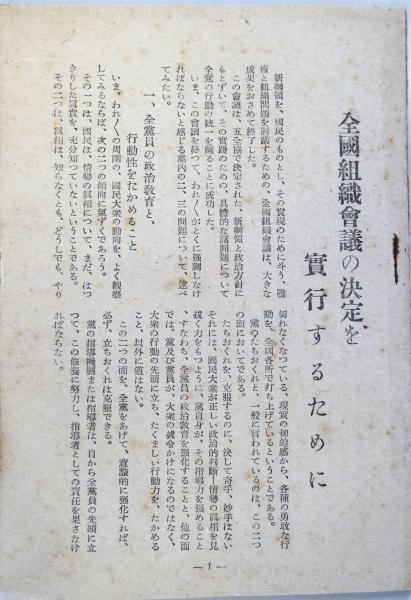 全國組織會議の決定を
實行するために
新綱領を、國民のものとし、その實現のために斗う、戰
術と組織問題を討議するための、全國組織會議は、大きな
成果をおさめて終了した。
この會議は、五全協で決定された、新綱領と政治方針に
もとずいて、その實踐のための、具體的な諸問題について
全党の行動の統一を圖ることに成功した。
いま、この會議を終つて、われ〱がとくに强調しなけ
ればならないと感じる党內の二、三の問題について、述べ
てみたい。
一、全黨員の政治敎育と、
行動性をたかめること
いま、われ〱の周圍の、國民大衆の動向を、よく觀察
してみるならば、次の二つの傾向に氣ずくであろう。
その一つは、國民は、情勢の眞相について、まだ、はつ
きりした眞實を、充分知つていないということである。
その二つは、眞相は、知らなくとも、どうしても、やり
切れなくなつている、現實の切迫感から、各種の勇敢な行
動を、全國各所で打ち上げているということである。
黨のたちおくれと、一般に言われているのは、この二つ
の面においてである。
たちおくれを、克服するのに、決して奇手、妙手はない
それには、國民大衆が正しい政治的判斷―情勢の眞相を見
拔く力をもつように、黨自身が、その指導力を强めること
すなわち、全黨員の政治敎育を强化することと、他の面
では、黨及び黨員が、大衆の號令かけになるのではなく、
大衆の行動の先頭に立ち、たくましい行動力を、たかめる
こと、以外に道はない。
この二つの面を、全黨をあげて、意識的に强化すれば、
必ず、立ちおくれは克服できる。
黨の指導機關または指導者は、自から全黨員の先頭に立
つて、この修養に努力し、指導者としての責任を果さなけ
ればならない。
— 1 —